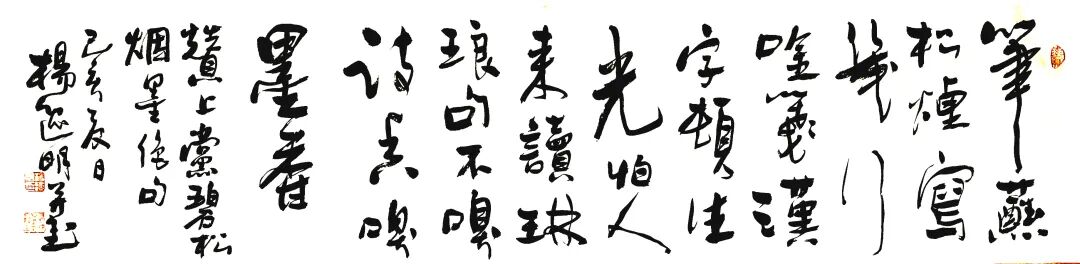 筆蘸
松煙寫
幾行
吟箋漢
字頓生
光怕人
来讀琳
琅句不嗅
詩嗅
墨香
贊上黨碧松
烟墨絕句
己亥夏日
楊明并記